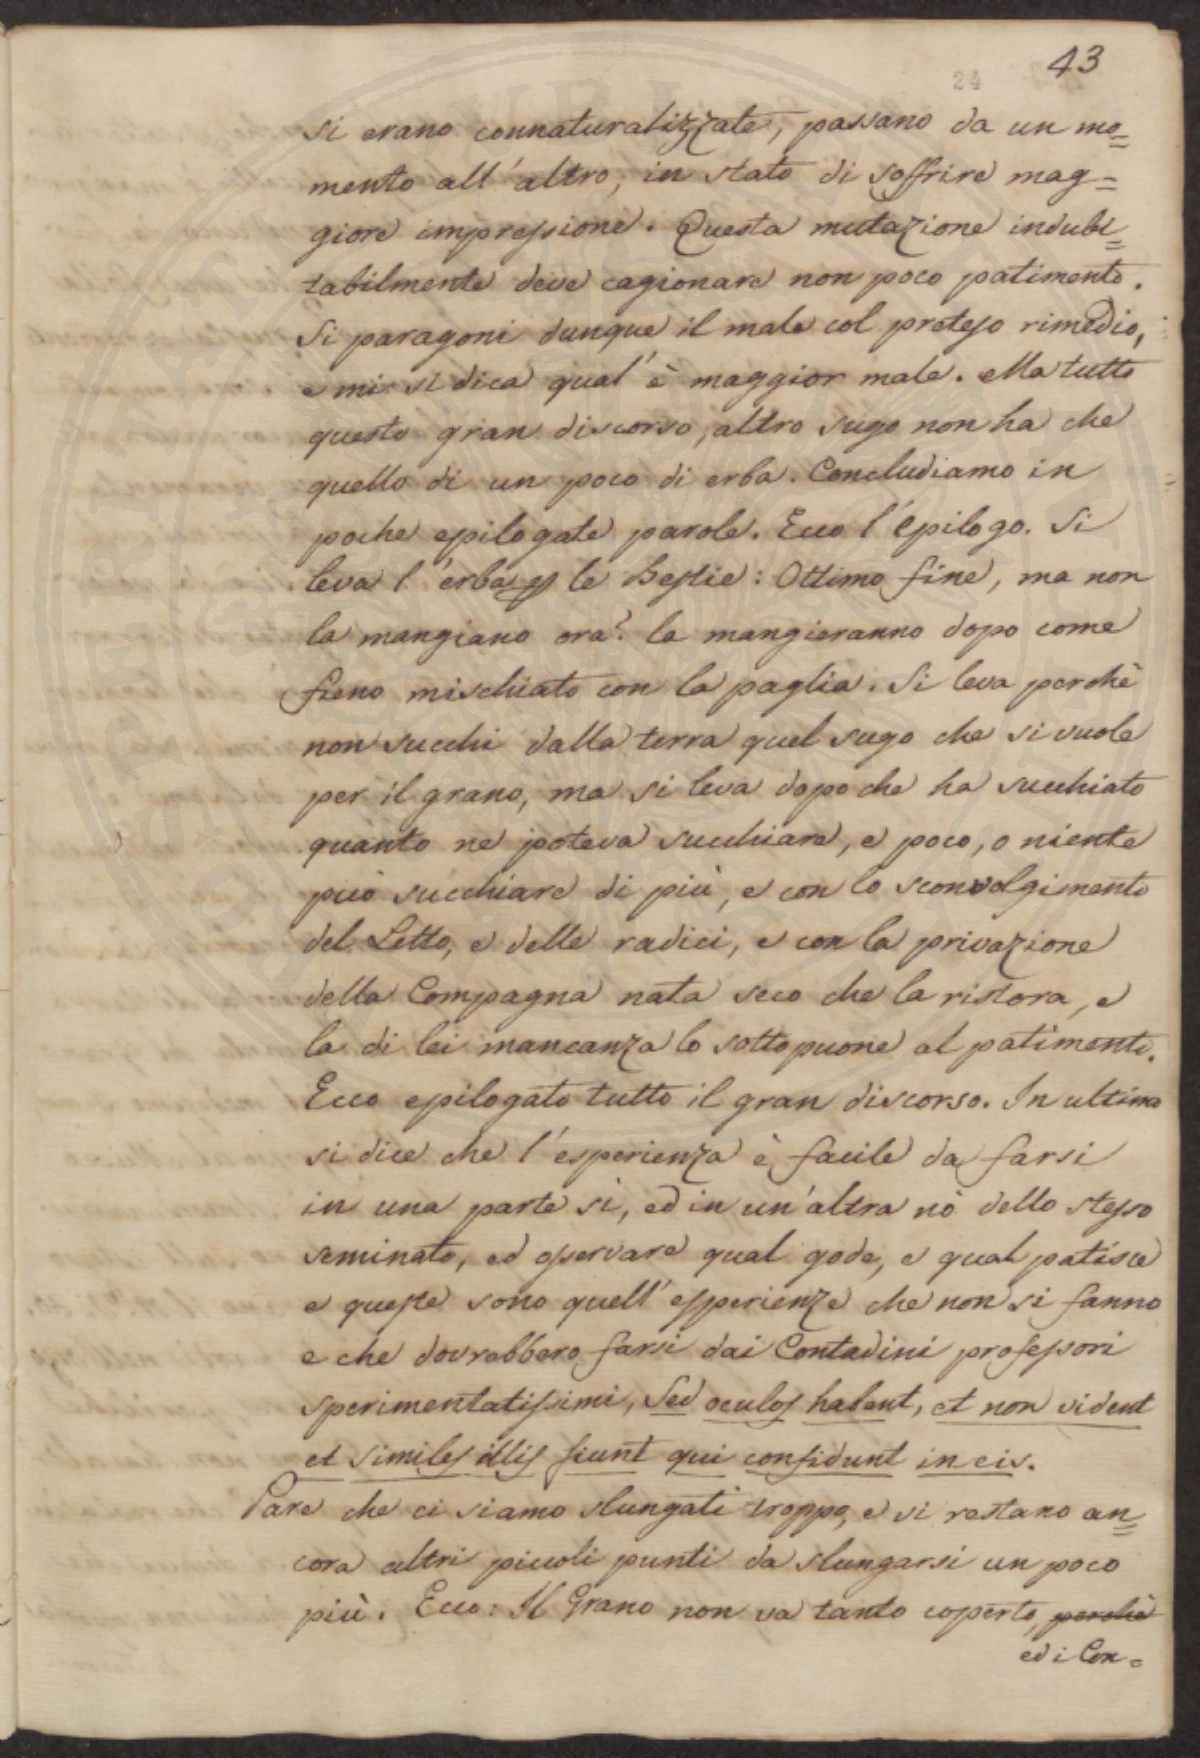 43
24
si erano connaturalizzate, passano da un mo=
mento all'altro, in stato di soffrire mag=
giore impressione. Questa mutazione indubi=
tabilmente deve cagionare non poco patimento.
Si paragoni dunque il male col preteso rimedio,
e mi si dica qual'è maggior male. Ma tutto
questo gran discorso, altro sugo non ha che
quello di un poco di erba. Concludiamo in
poche epilogate parole. Ecco l'epilogo. Si
leva l'erba p le Bestie: Ottimo fine, ma non
la mangiano ora? la mangieranno dopo come
fieno mischiato con la paglia. Si leva perchè
non succhi dalla terra quel sugo che si vuole
per il grano, ma si leva dopo che ha succhiato
quanto ne poteva succhiare, e poco, o niente
può succhiare di più, e con lo sconvolgimento
del Letto, e delle radici, e con la privazione
della Compagna nata seco che la ristora, e
la di lei mancanza lo sottopuone al patimento.
Ecco epilogato tutto il gran discorso. In ultimo
si dice che l'esperienza è facile da farsi
in una parte si, ed in un'altra nò dello stesso
seminato, ed osservare qual gode, e qual patisce
e queste sono quell'esperienze che non si fanno
e che dovrebbero farsi dai Contadini professori
sperimentatissimi, Sed oculos habent, et non vident
et similes illis fiunt qui confidunt in eis.
Pare che ci siamo slungati troppo, e si restano an=
cora altri piccoli punti da slungarsi un poco
più. Ecco: Il Grano non va tanto coperto, perchè
ed i Con=